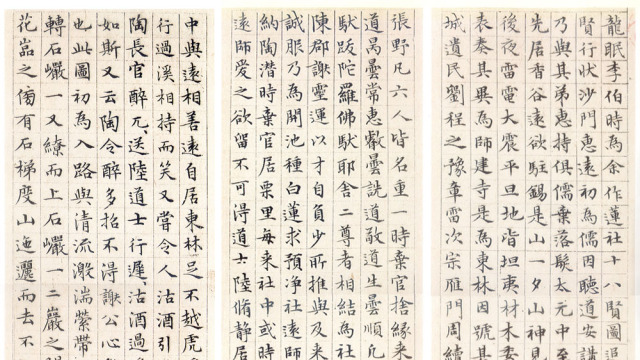 龍眠李伯時為余作蓮社十八賢圖追
賢行狀沙門惠遠初為儒因聽道安講
乃與其弟惠持俱儒棄落髮太元中至
先居香谷遠欲駐錫是山一夕山神見
後夜雷電大震平旦地皆坦夷材木委
表奏其異為師建寺是為東林因號其
城遺民劉程之豫章雷次宗雁門周續
張野凡六人皆名重一時棄官捨緣来
道昺曇常惠叡曇詵道敬道生曇順凡
馱跋陀羅佛馱耶舍二尊者相結為社
陳郡謝靈運以才自負少所推與及来
誠服乃為開池種白蓮求預净社遠師
納陶潛時棄官居栗里每来社中或時
遠師愛之欲留不可得道士陸脩静居
中與遠相善遠自居東林足不越虎
行過溪相持而笑又嘗令人沽酒引
陶長官醉兀、送陸道士行遲、沽酒過
如斯又云陶令醉多招不得謝公心
也此圖初為入路與清流激湍縈帶
轉石巖一又繚而上石巖一二巖之
花嵓之傍有石梯度山迤邐而去不